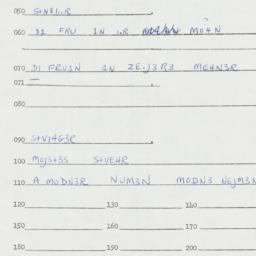 050 S+N8L.R
060 DI FRU IN I.R MO4N
070 DI FRUSN IN ZE.J3R3 ME4N3R
071
080
090 S+VI4G3R
100 MOJS+3S S+VE4R
110 A MODN3R NUM3N MODN3 NEJM3N
120 130 140
150 160 170
180 190 200